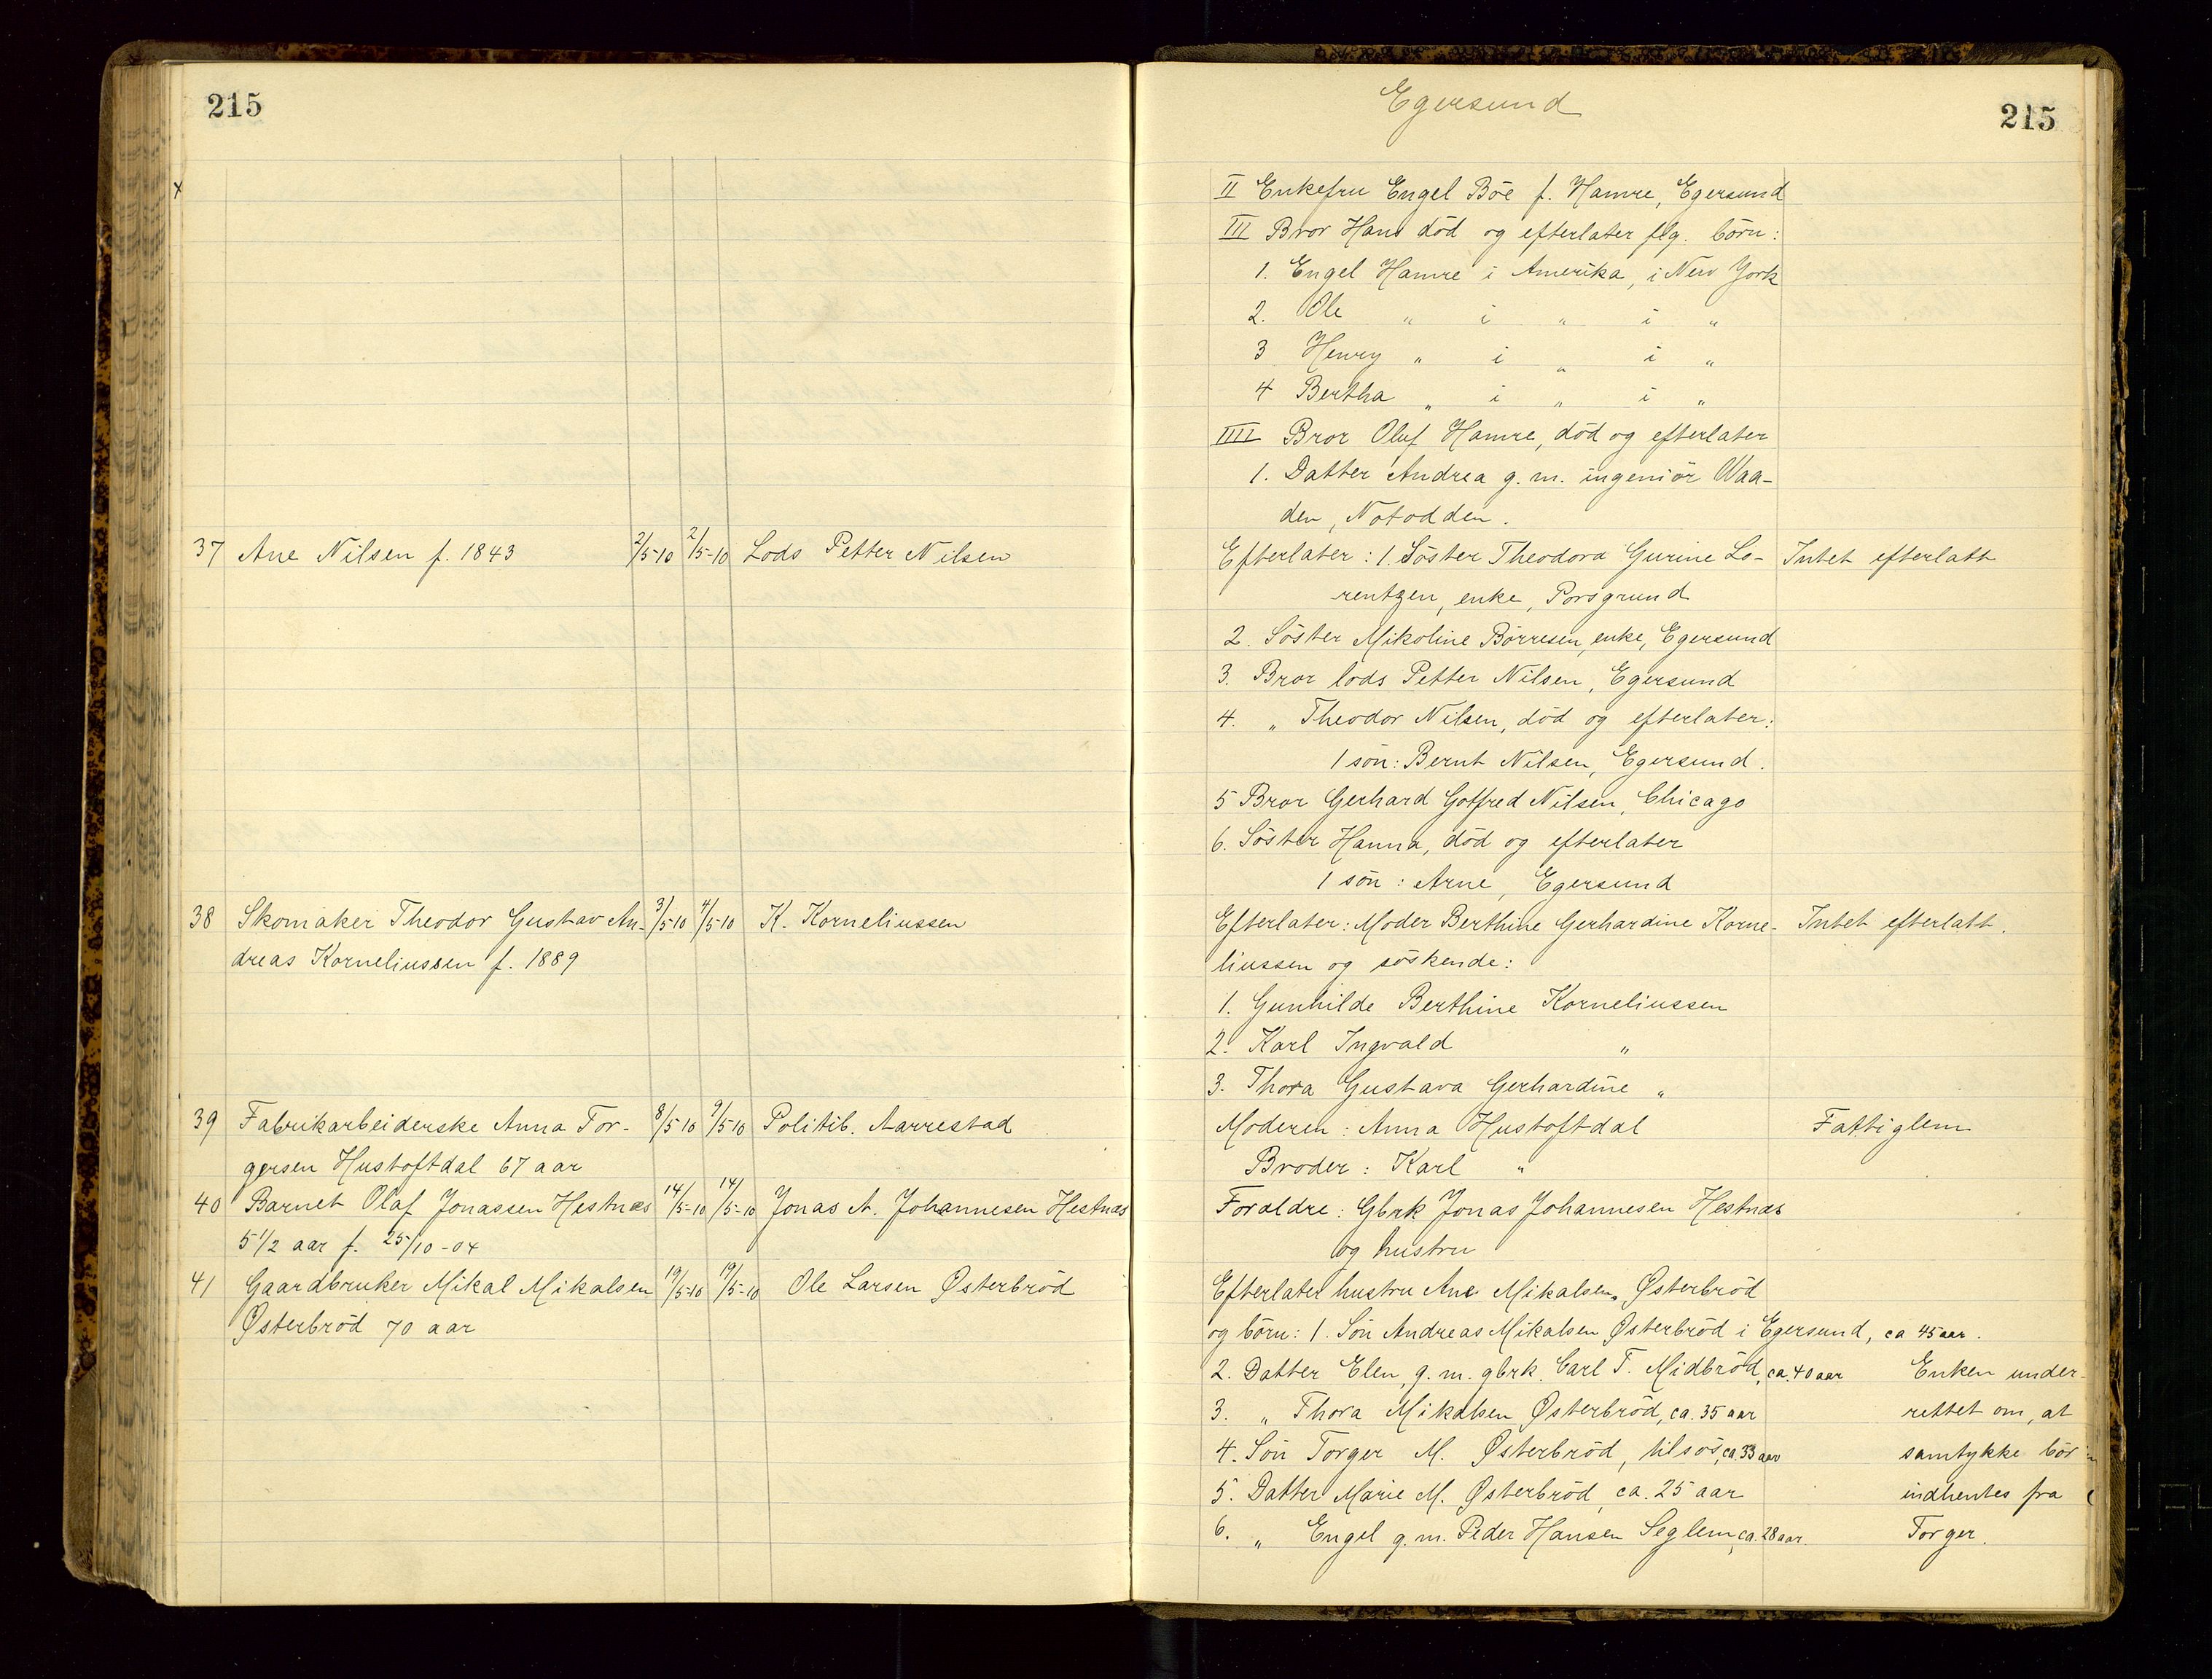 215
Egersund
215
x
II Enkefru Engel Böe f. Hamre, Egersund
III Bror Hans död og efterlater flg. börn:
1. Engel Hamre i Amerika, i New York
2. Ole „ i „ i „
3 Henry „ i „ i „
4 Bertha „ i „ i „
IIII Bror Oluf Hamre, död og efterlater
1. Datter Andrea g. m. ingeniör Waa-
den, Notodden.
37 Ane Nilsen f. 1843 2/5-10 2/5-10 Lods Petter Nilsen Efterlater: 1. Söster Theodora Gurine Lo- Intet efterlatt
rentzen, enke, Porsgrund
2. Söster Mikoline Börresen, enke, Egersund
3. Bror lods Petter Nilsen, Egersund
4. „ Theodor Nilsen, död og efterlater:
1 sön: Bernt Nilsen, Egersund.
5 Bror Gerhard Gotfred Nilsen, Chicago
6. Söster Hanna, död og efterlater
1 sön: Arne, Egersund
38 Skomaker Theodor Gustav An- 3/5-10 4/5-10 K. Korneliussen Efterlater: Moder Berthine Gerhardine Korne- Intet efterlatt.
dreas Korneliussen f. 1889 liussen og söskende:
1. Gunhilde Berthine Korneliussen
2. Karl Ingvald „
3. Thora Gustava Gerhardine „
39 Fabrikarbeiderske Anna Tor- 8/5-10 9/5-10 Politib. Aarrestad Moderen: Anna Hustoftdal Fattiglem
gersen Hustoftdal 67 aar Broder: Karl „
40 Barnet Olaf Jonassen Hestnes 14/5-10 14/5-10 Jonas A. Johannesen Hestnæs Forældre: Gbrk Jonas Johannesen Hestnæs
5 1/2 aar f. 25/10-04 og hustru
41 Gaardbruker Mikal Mikalsen 19/5-10 19/5-10 Ole Larsen Østerbröd Efterlater hustru Ane Mikalsen, Østerbröd
Østerbröd 70 aar og börn: 1. Sön Andreas Mikalsen Østerbröd i Egersund, ca 45 aar.
2. Datter Elen, g. m. gbrk. Carl T. Midbröd, ca. 40 aar Enken under-
3. „ Thora Mikalsen Østerbröd, ca. 35 aar rettet om, at
4. Sön Torger M. Østerbröd, tilsös, ca. 33 aar samtykke bör
5. Datter Marie M. Østerbröd, ca. 25 aar indhentes fra
6. „ Engel g. m. Peder Hansen Seglem, ca. 28 aar. Torger.